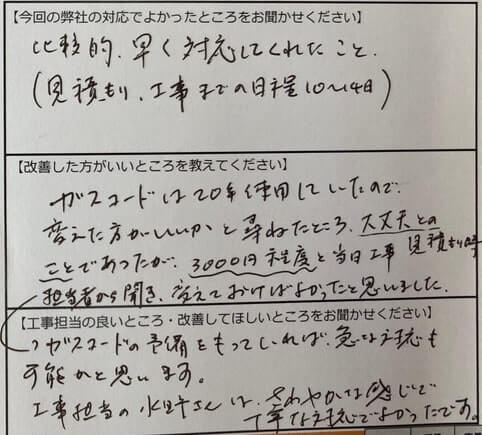 【今回の弊社の対応でよかったところをお聞かせください】
比較的、早く対応してくれたこと.
(見積もり、工事までの日程10〜14日)
【改善した方がいいところを教えてください】
ガスコードは20年使用していたので、
変えた方がいいかと尋ねたところ、大丈夫との
ことであったが、3000円程度と当日工事 見積もり時
担当者から聞き、変えておけばよかったと思いました.
【工事担当の良いところ・改善してほしいところをお聞かせください】
ガスコードの予備をもっていれば、急な対応も
可能かと思います。
工事担当の水野さんは、さわやかな感じで
丁寧な対応でよかったです。